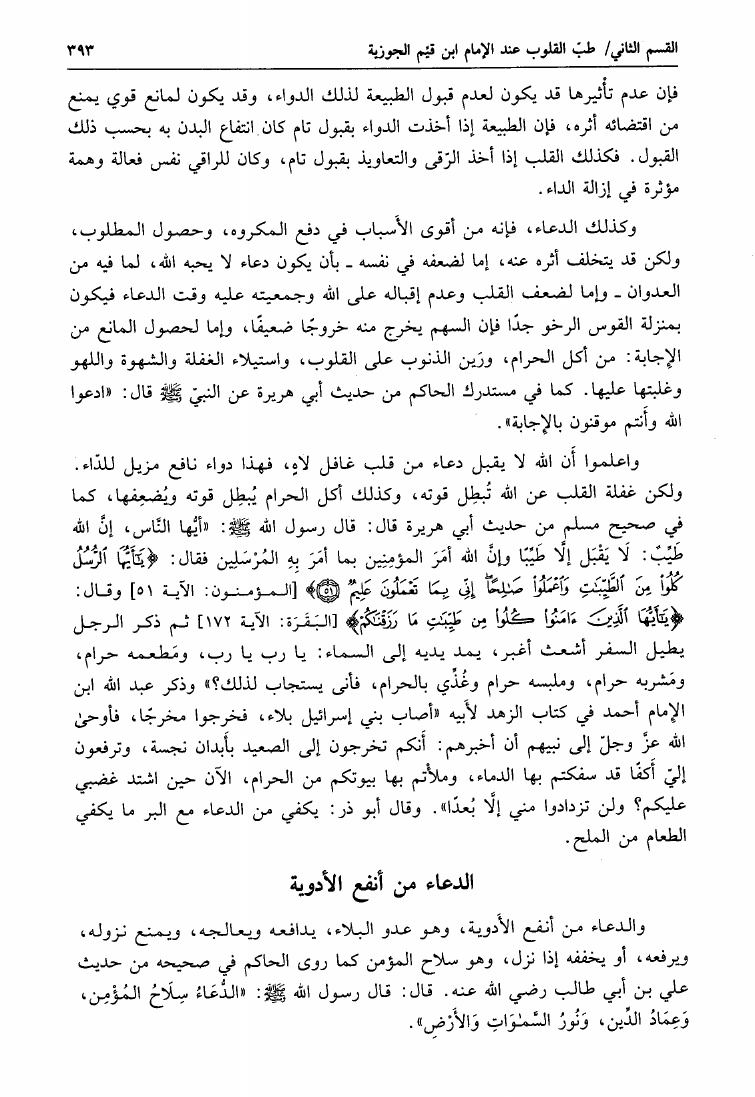 القسم الثاني/ طبّ القلوب عند الإمام ابن قيّم الجوزية ٣٩٣
فإن عدم تأثيرها قد يكون لعدم قبول الطبيعة لذلك الدواء، وقد يكون لمانع قوي يمنع
من اقتضائه أثره، فإن الطبيعة إذا أخذت الدواء بقبول تام كان انتفاع البدن به بحسب ذلك
القبول. فكذلك القلب إذا أخذ الرّقى والتعاويذ بقبول تام، وكان للراقي نفس فعالة وهمة
مؤثرة في إزالة الداء.
وكذلك الدعاء، فإنه من أقوى الأسباب في دفع المكروه، وحصول المطلوب،
ولكن قد يتخلف أثره عنه، إما لضعفه في نفسه ـ بأن يكون دعاء لا يحبه الله، لما فيه من
العدوان ـ وإما لضعف القلب وعدم إقباله على الله وجمعيته عليه وقت الدعاء فيكون
بمنزلة القوس الرخو جدًا فإن السهم يخرج منه خروجًا ضعيفًا، وإما لحصول المانع من
الإجابة: من أكل الحرام، ورَين الذنوب على القلوب، واستيلاء الغفلة والشهوة واللهو
وغلبتها عليها. كما في مستدرك الحاكم من حديث أبي هريرة عن النبيّ ﷺ قال: «ادعوا
الله وأنتم موقنون بالإجابة».
واعلموا أن الله لا يقبل دعاء من قلب غافل لاهٍ، فهذا دواء نافع مزيل للدّاء.
ولكن غفلة القلب عن الله تُبطِل قوته، وكذلك أكل الحرام يُبطِل قوته ويُضعِفها، كما
في صحيح مسلم من حديث أبي هريرة قال: قال رسول الله ﷺ: «أيُّها النَّاس، إنَّ الله
طَيِّبٌ: لَا يَقْبَل إلَّا طَيِّبًا وإنَّ الله أمَرَ المؤمنِين بما أمَرَ بِهِ المُرْسَلِين فقال: ﴿يَٰٓأَيُّهَا ٱلرُّسُلُ
كُلُوا۟ مِنَ ٱلطَّيِّبَٰتِ وَٱعْمَلُوا۟ صَٰلِحًا ۖ إِنِّى بِمَا تَعْمَلُونَ عَلِيمٌ ۝٥١﴾ [المؤمنون: الآية ٥١] وقال:
﴿يَٰٓأَيُّهَا ٱلَّذِينَ ءَامَنُوا۟ كُلُوا۟ مِن طَيِّبَٰتِ مَا رَزَقْنَٰكُمْ﴾ [البَقَرَة: الآية ١٧٢] ثم ذكر الرجل
يطيل السفر أشعث أغبر، يمد يديه إلى السماء: يا رب يا رب، ومَطعمه حرام،
ومَشربه حرام، وملبسه حرام وغُذِّي بالحرام، فأنى يستجاب لذلك؟» وذكر عبد الله ابن
الإمام أحمد في كتاب الزهد لأبيه «أصاب بني إسرائيل بلاء، فخرجوا مخرجًا، فأوحىٰ
الله عزَّ وجلّ إلى نبيهم أن أخبرهم: أنكم تخرجون إلى الصعيد بأبدان نجسة، وترفعون
إليّ أكفًا قد سفكتم بها الدماء، وملأتم بها بيوتكم من الحرام، الآن حين اشتد غضبي
عليكم؟ ولن تزدادوا مني إلَّا بُعدًا». وقال أبو ذر: يكفي من الدعاء مع البر ما يكفي
الطعام من الملح.
الدعاء من أنفع الأدوية
والدعاء من أنفع الأدوية، وهو عدو البلاء، يدافعه ويعالجه، ويمنع نزوله،
ويرفعه، أو يخففه إذا نزل، وهو سلاح المؤمن كما روى الحاكم في صحيحه من حديث
علي بن أبي طالب رضي الله عنه. قال: قال رسول الله ﷺ: «الدُّعَاءُ سِلَاحُ المُؤْمِن،
وَعِمَادُ الدِّين، وَنُورُ السَّمٰوَاتِ وَالأَرْضِ».